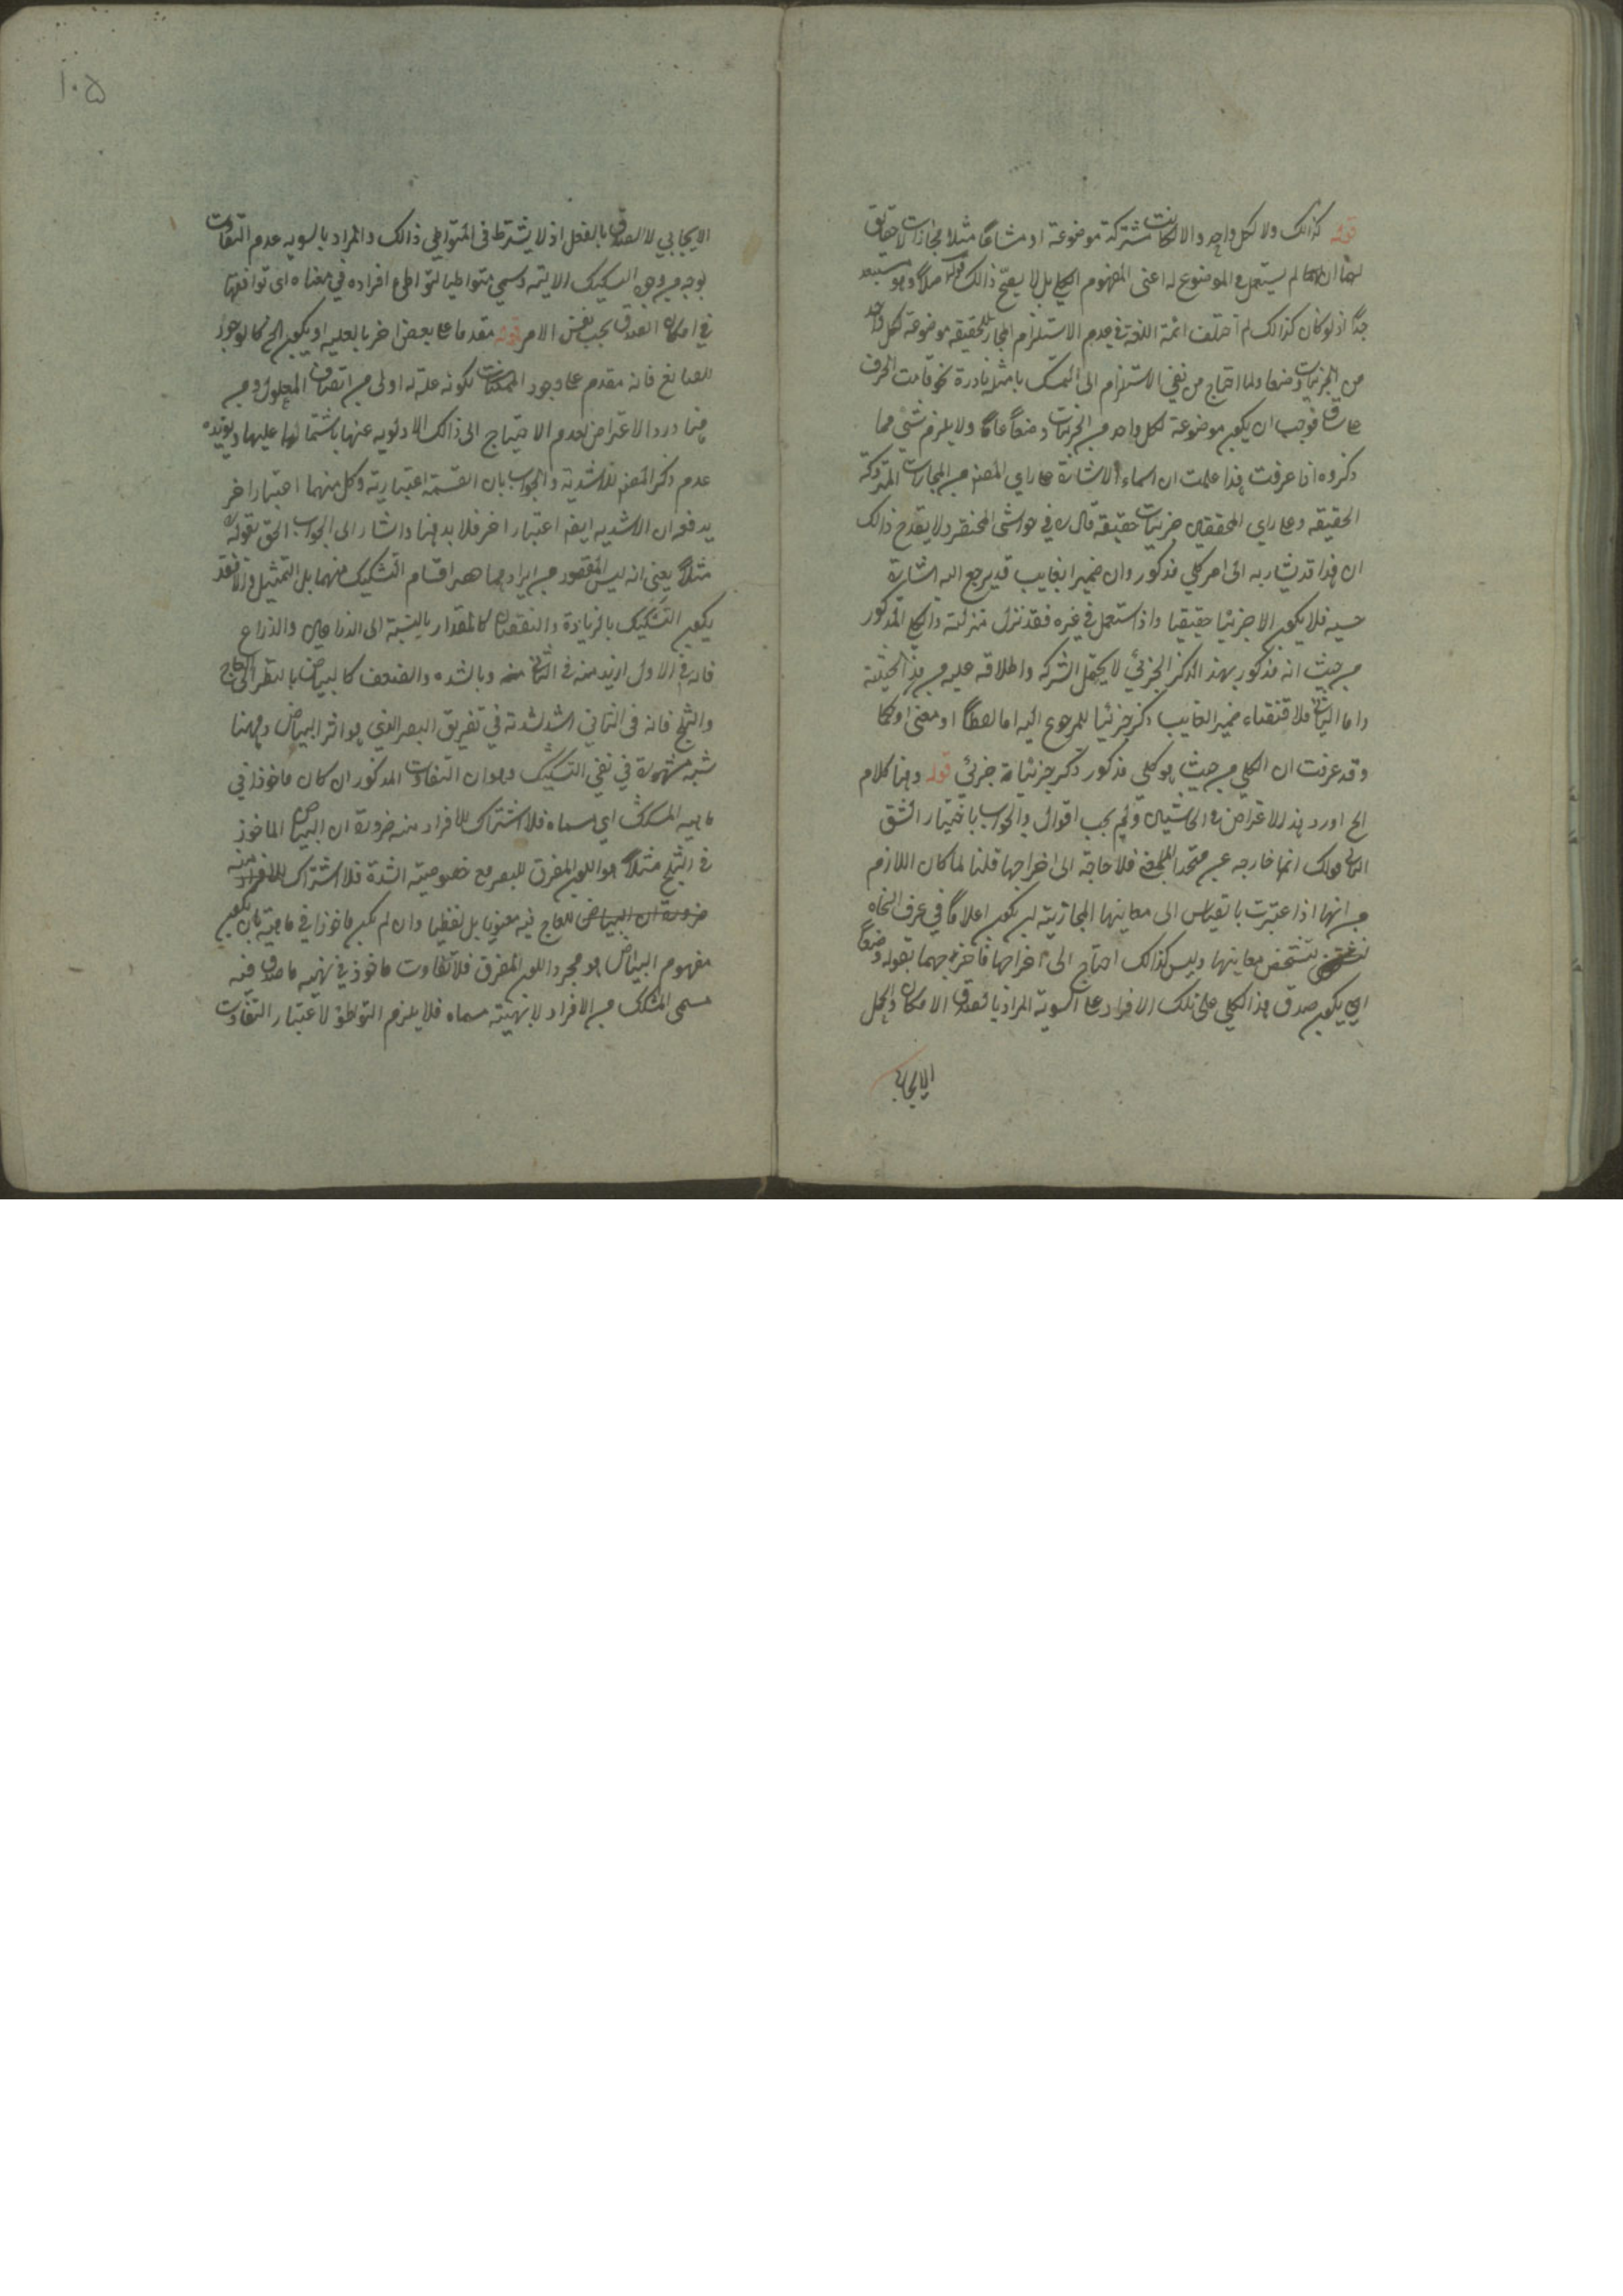 قوله كذالك ولا لكل واحد والا لكانت مشتركة موضوعة او مشاعا مثلا مجازات لا حقايق
لها ان لم يستعمل في الموضوع له اعنى المفهوم الكلي بل لا يصح ذالك اصلا وهو مستبعد
جدا اذ لو كان كذالك لم اختلف ائمة اللغة في عدم الاستلزام المجاز للحقيقة موضوعة لكل واحد
من الجزئيات وضعا ولما احتاج من نفي الاستلزام الى التمسك بامثلة نادرة نحو قامت الحرف
على ساق فوجب ان يكون موضوعة لكل واحد من الجزئيات وضعا عاما ولا يلزم شئ مما
ذكروه اذا عرفت هذا علمت ان اسماء الاشارة على راي المصنف من المجازات المتروكة
الحقيقة وعلى راي المحققين جزئيات حقيقة قال في حواشى المختصر ولا يقدح ذالك
ان هذا قد يشار به الى امر كلي مذكور وان ضمير الغايب قد يرجع اليه اشارة
حسيه فلا يكون الا جزئيا حقيقيا واذ استعمل في غيره فقد نزل منزلته والكلي المذكور
من حيث انه مذكور بهذ الذكر الجزئي لا يحتمل الشركه واطلاقه عليه من هذ الحيثية
واما الثانى فلاقتضاء ضمير الغايب ذكر جزئيا للمرجوع اليه اما لفظا او معنى او حكما
وقد عرفت ان الكلي من حيث هو كلي مذكور ذكر جزئيا جزئي قوله وهنا كلام
الخ اورد هذ الاعتراض في الحاشية ولم يجب اقول والجواب باختيار الشق
الثانى قولك انها خارجه عن متحد المعنى فلا حاجة الى اخراجها قلنا لما كان اللازم
من انها اذا عتبرت بالقياس الى معانيها المجازيته ان يكون اعلاما في عرف النحاه
لتشخص معانيها وليس كذالك احتاج الى اخراجها فاخرجهما بقوله وضعا
اي يكون صدق هذ الكلي على تلك الافراد على السوية المراد بالصدق الامكان والحمل
الايجابى
١٠٥
الايجابي لا الصدق بالفعل اذ لا يشترط في المتواطي ذالك والمراد بالسويه عدم التفاوت
بوجه من وجوه التشكيك الاتيه وسمي متواطيا لتواطى افراده في معناه اى توافقها
في امكان الصدق بحسب نفس الامر قوله مقدما على بعض اخر بالعليه او يكون الخ كالوجود
للصانع فانه مقدم على وجود الممكنات لكونه علة له اولى من اتصاف المعلول ومن
هنا ورد الاعتراض بعدم الاحتياج الى ذالك الاولويه عنها باشتمالها عليها ويؤيده
عدم ذكر المصنف للاشدية والجواب بان القسمة اعتبارية وكل منهما اعتبارا خر
يدفعه ان الاشديه ايضا اعتبارا خر فلا بد هنا واشار الى الجواب الحق بقوله
مثلا يعني انه ليس المقصود من ايرادهما حصر اقسام التشكيك فيهما بل التمثيل والا فقد
يكون التشكيك بالزيادة والنقصان كالمقدار بالنسبة الى الذراعين والذراع
فانه في الاول ازيد منه في الثانى وبالشده والضعف كالبياض بالنظر الى العاج
والثلج فانه في الثاني اشد لشدته في تفريق البصر الذي هو اثر البياض وههنا
شبهة مشهورة في نفي التشكيك وهو ان التفاوت المذكور ان كان ماخوذا في
ماهيه المشكك اى مسماه فلا اشتراك للافراد منه ضرورة ان البياض الماخوذ
في الثلج مثلا هو اللون المفرق للبصر مع خصوصية الشدة فلا اشتراك للافراد منه
ضرورة ان البياض للعاج فيه معنويا بل لفظيا وان لم يكن ماخوذا في ماهيته بان يكون
مفهوم البياض هو مجرد اللون المفرق فلا تفاوت ماخوذ في نهيه ماصدق فيه
مسمى المشكك من الافراد لا نهيته مسماه فلا يلزم التواطؤ لاعتبار التفاوت